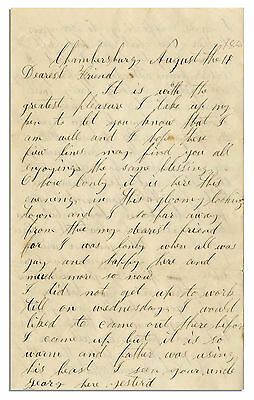 Chambersburg August the 4
Dearest Friend
It is with the
greatest pleasure I take up my
pen to let you know that I
am well and I hope these
few lines may find you all
enjoying the same blessing
O how lonly it is here this
evening in this gloomy looking
town and I so far away
from thee my dearest friend
for I was lonly when all was
gay and happy here and
much more so now
I did not get up to work
till on wednesday I would
liked to came out there before
I came up but it is so
warm and father was using
his beast I seen your uncle
Geary here yesterd